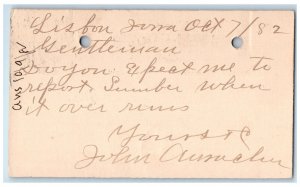 Lisbon Iowa Oct 7/82
Gentleman
Do you Expect me to
report Lumber when
it over runs
Yours &c
John